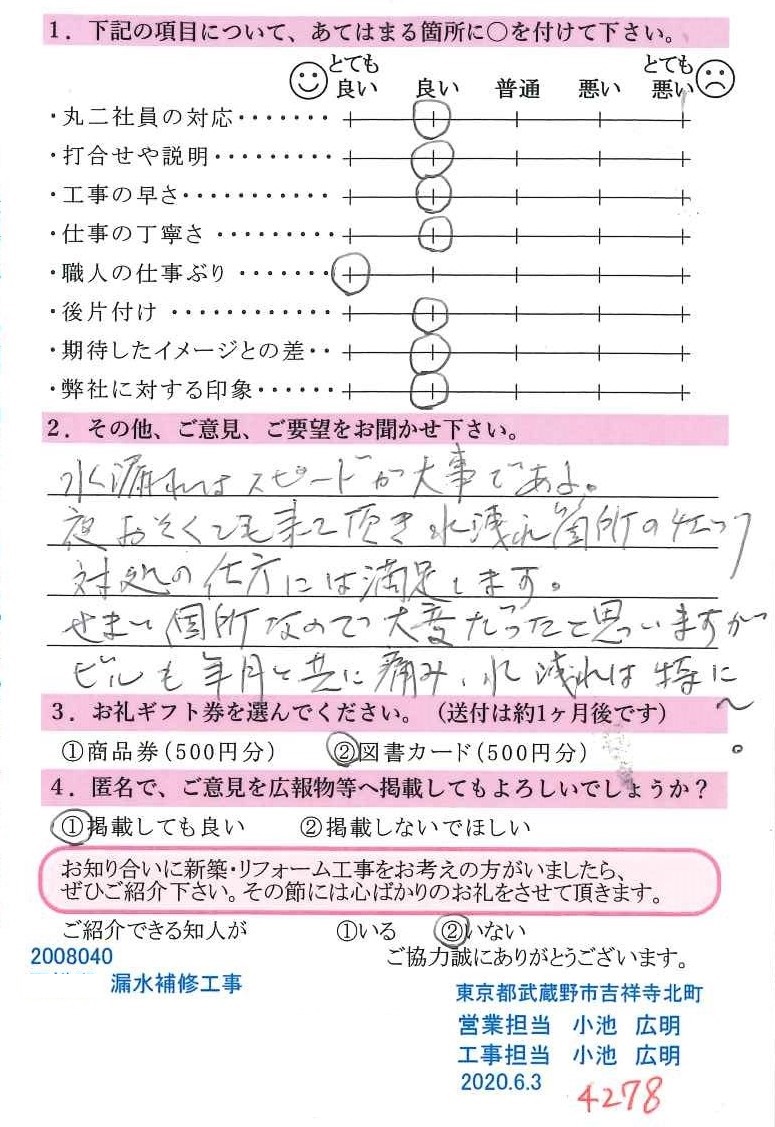 1．下記の項目について、あてはまる箇所に○を付けて下さい。
とても良い 良い 普通 悪い とても悪い
・丸二社員の対応・・・・・・・
・打合せや説明・・・・・・・・・
・工事の早さ・・・・・・・・・・・
・仕事の丁寧さ ・・・・・・・・・
・職人の仕事ぶり ・・・・・・・
・後片付け ・・・・・・・・・・・・
・期待したイメージとの差・・
・弊社に対する印象・・・・・・
2．その他、ご意見、ご要望をお聞かせ下さい。
水漏れはスピードが大事である。
夜おそくでも来て頂き水洩れ箇所のチェック
対処の仕方には満足します。
せまい箇所なので大変だったと思いますが
ビルも年月と共に痛み、水洩れは特に〜。
3．お礼ギフト券を選んでください。（送付は約1ヶ月後です）
①商品券（500円分） ②図書カード（500円分）
4．匿名で、ご意見を広報物等へ掲載してもよろしいでしょうか？
①掲載しても良い ②掲載しないでほしい
お知り合いに新築・リフォーム工事をお考えの方がいましたら、
ぜひご紹介下さい。その節には心ばかりのお礼をさせて頂きます。
ご紹介できる知人が ①いる ②いない
ご協力誠にありがとうございます。
2008040
漏水補修工事
東京都武蔵野市吉祥寺北町
営業担当 小池 広明
工事担当 小池 広明
2020.6.3
4278